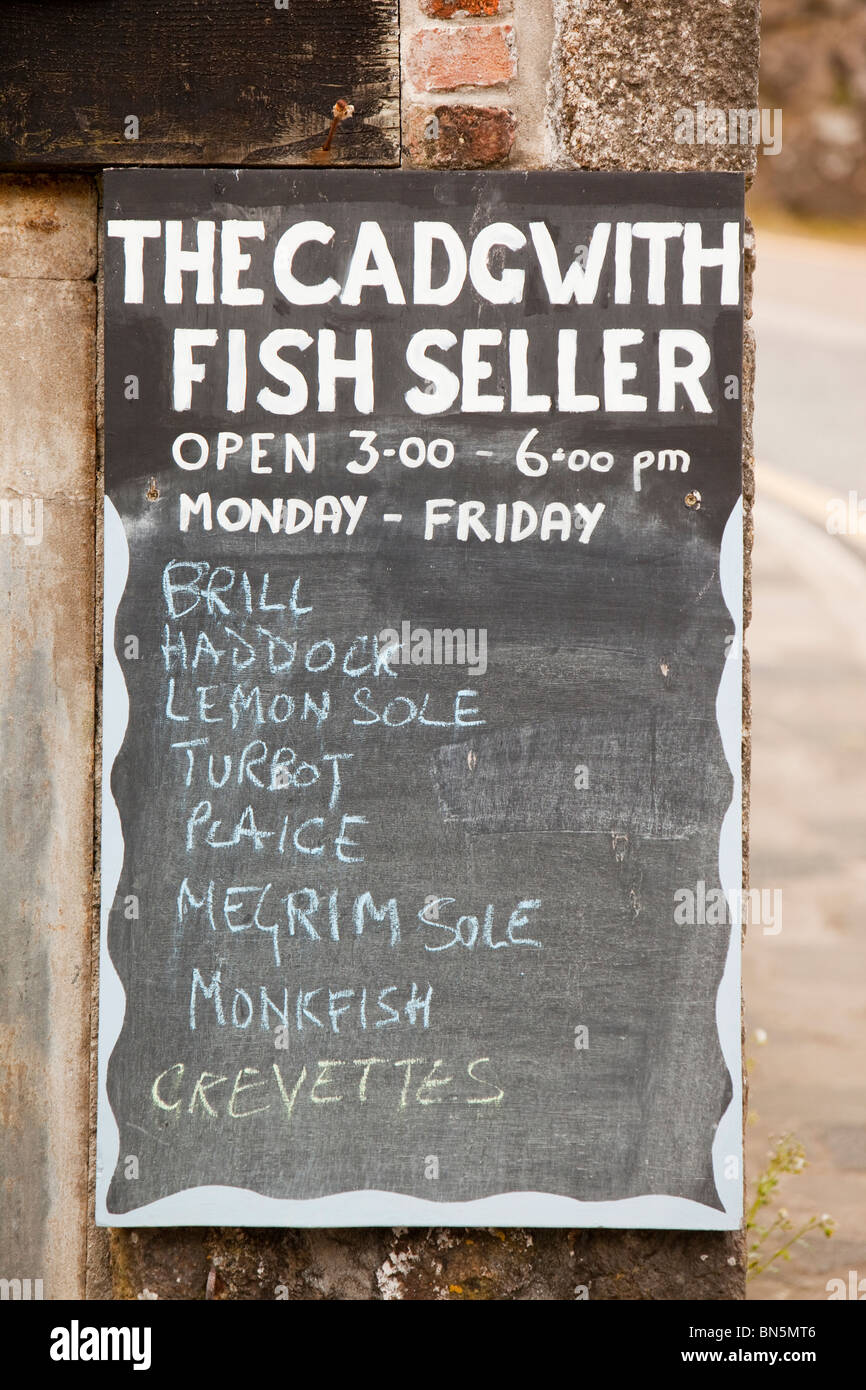 THE CADGWITH
FISH SELLER
OPEN 3-00 - 6-00 pm
MONDAY - FRIDAY
BRILL
HADDOCK
LEMON SOLE
TURBOT
PLAICE
MEGRIM SOLE
MONKFISH
CREVETTES
alamy
Image ID: BN5MT6
www.alamy.com